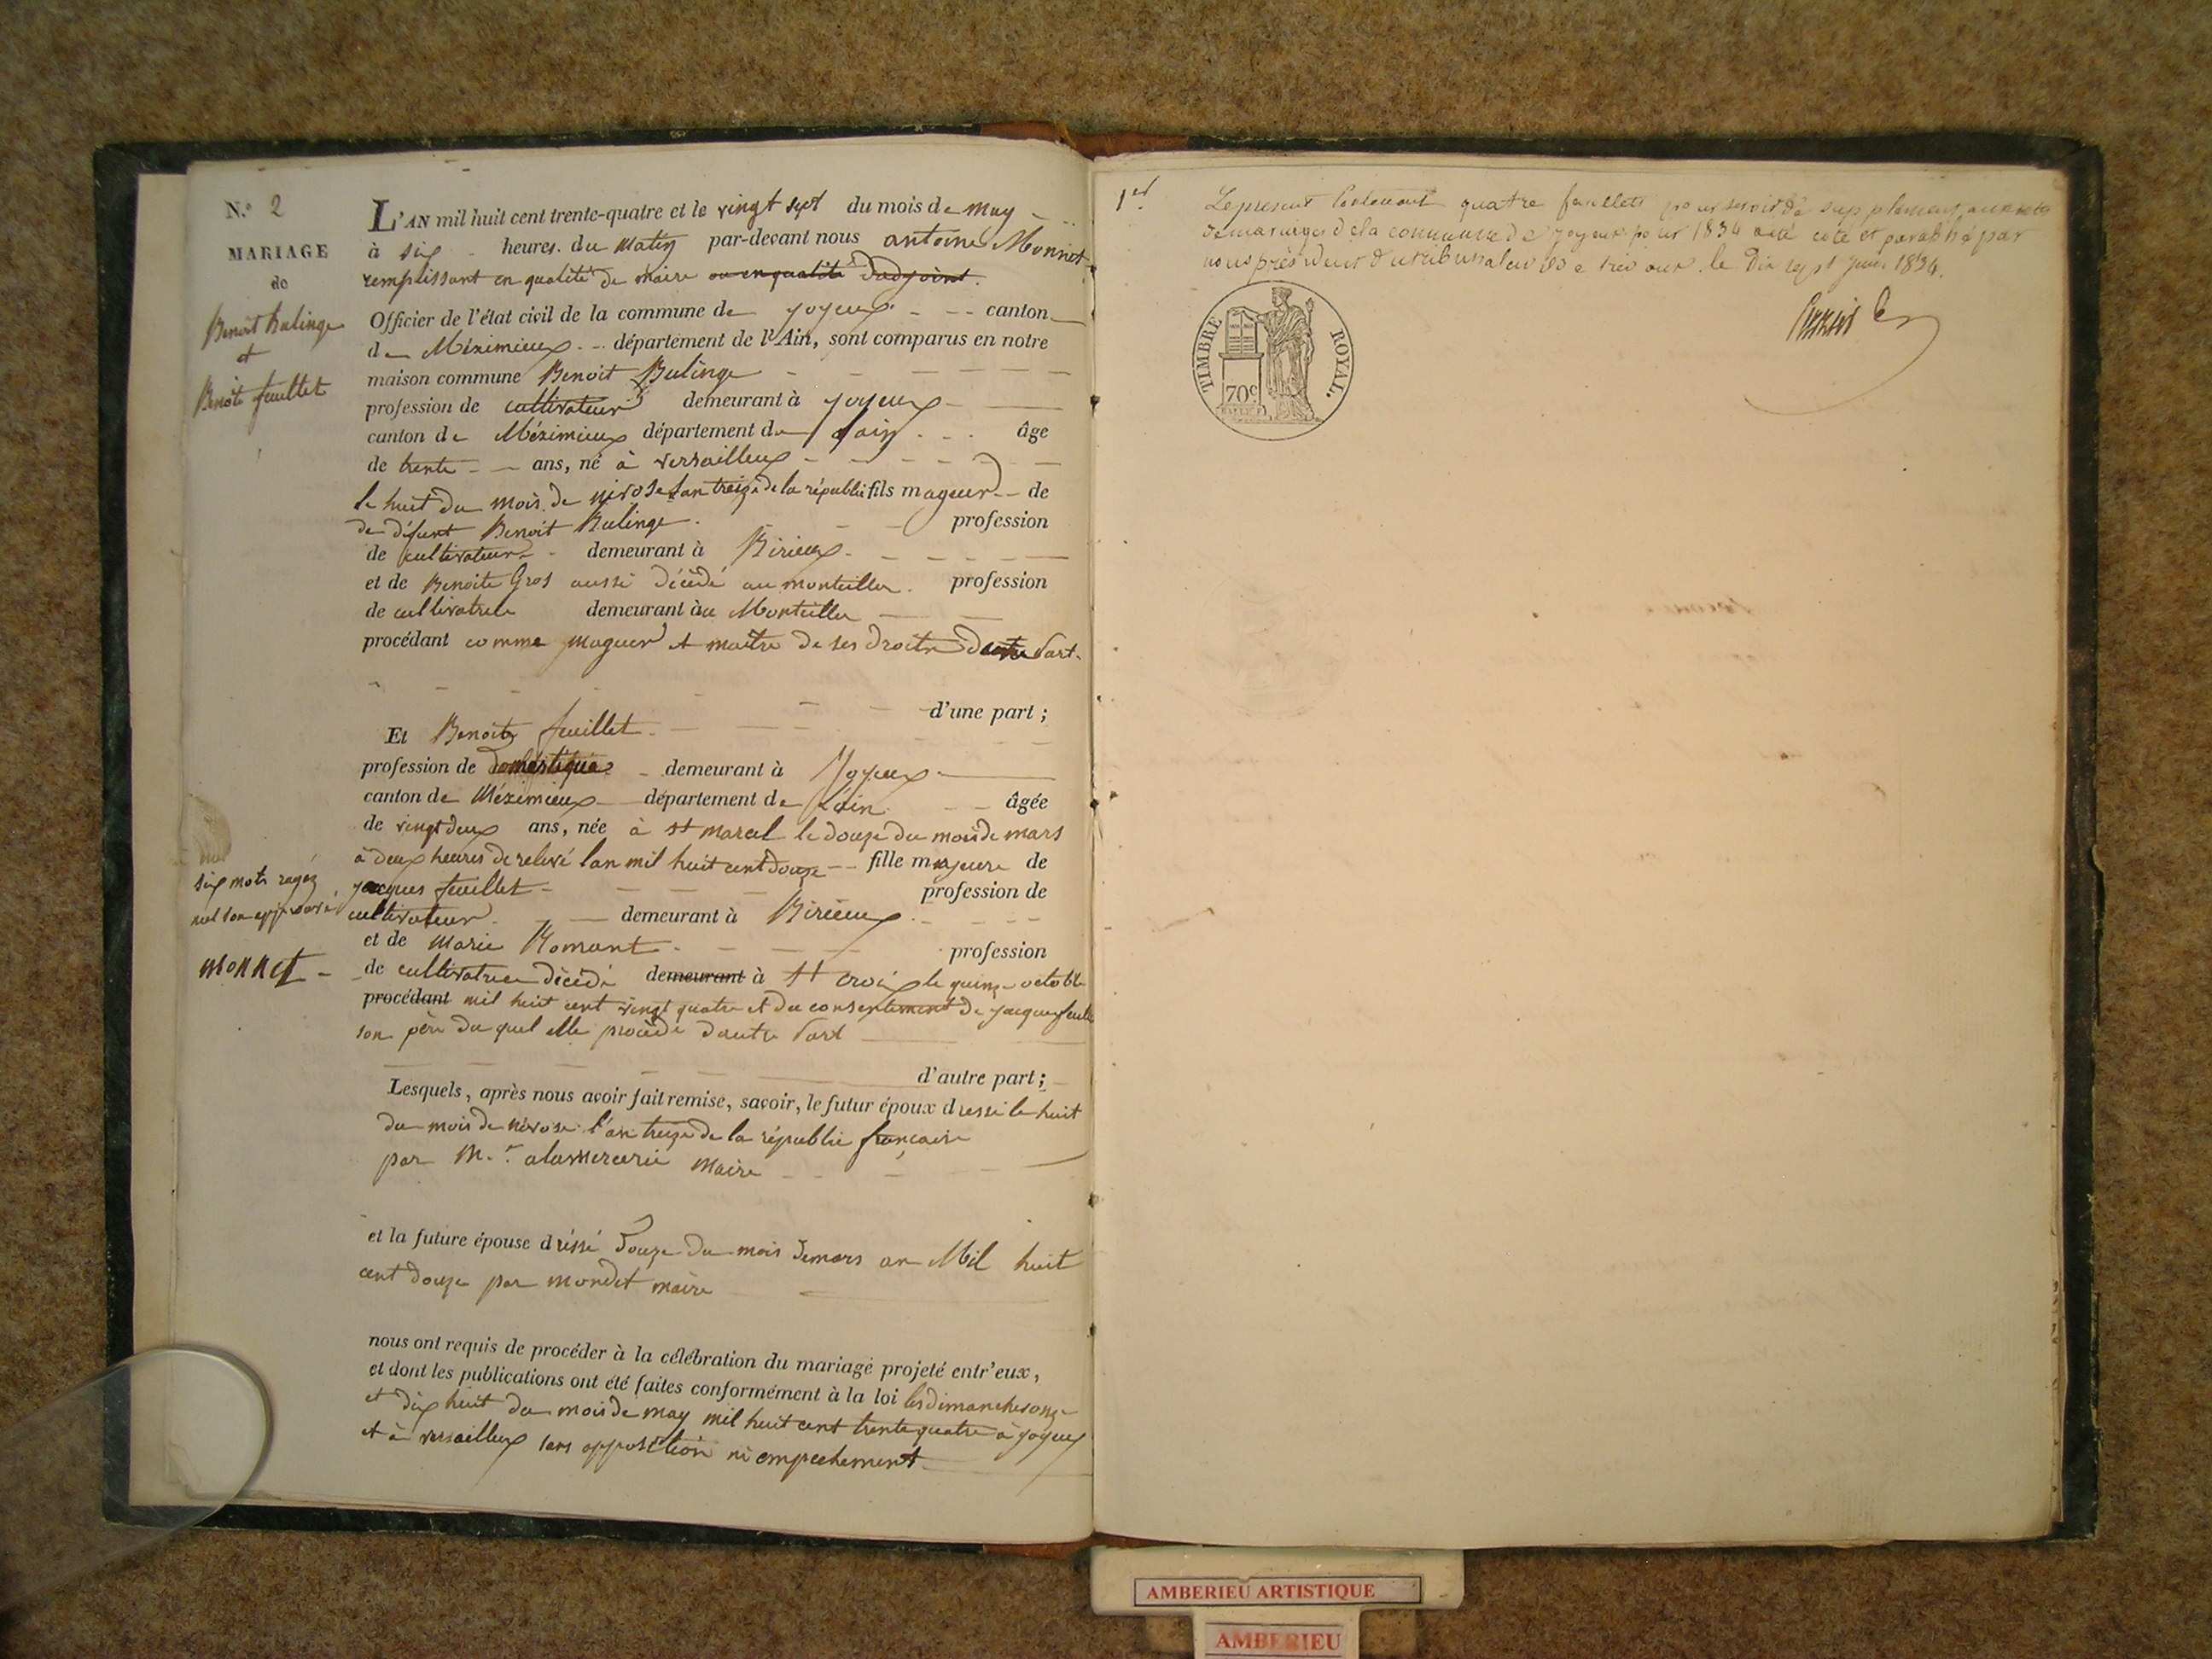 N.º 2
MARIAGE
de
Benoit Bulinge
et
Benoite feuillet
L'AN mil huit cent trente-quatre et le vingt sept du mois de may
à six heures du matin par-devant nous antoine Monnet
remplissant en qualité de maire ou en qualité d'adjoint.
Officier de l'état civil de la commune de joyeux canton
de Méximieux département de l'Ain, sont comparus en notre
maison commune Benoit Bulinge
profession de cultivateur demeurant à joyeux
canton de Méximieux département de lain âge
de trente ans, né à versailleux
le huit du mois de nivose lan treize de la républi fils mageur de
de défunt Benoit Bulinge profession
de cultivateur demeurant à Birieux
et de Benoite Gros aussi décédé au montellier profession
de cultivatrice demeurant au Montellier
procédant comme mageur et maitre de ses droits part
d'une part ;
Et Benoite feuillet
profession de domestique demeurant à Joyeux
canton de Méximieux département de Lain âgée
de vingt deux ans, née à st marcel le douze du mois de mars
à deux heures de relevé lan mil huit cent douze fille majeure de
jacques feuillet profession de
cultivateur demeurant à Birieux
et de Marie Romant profession
de cultivatrice décédé demeurant à st croix le quinze octobre
procédant mil huit cent vingt quatre et du consentement de jacques feuillet
son père du quel elle procède dautre part
d'autre part ;
six mots rayés
nul
MONNET
Lesquels, après nous avoir fait remise, savoir, le futur époux dressé le huit
du mois de nivose l'an treize de la républi française
par M.r maire
et la future épouse dréssé Douze du mois demars an Mil huit
cent douze par mondet maire
nous ont requis de procéder à la célébration du mariage projeté entr'eux,
et dont les publications ont été faites conformément à la loi les dimanches onze
et dix huit du mois de may mil huit cent trente quatre à joyeux
et à versailleux sans opposition ni empechement
1er
Le present Contenant quatre feuillets pour servir de supplement aux actes
de mariages de la commune de joyeux pour 1834 a été coté et paraphé par
nous président du tribunal de Trevoux le Dix sept 1834.
TIMBRE ROYAL.
70c
AMBERIEU ARTISTIQUE
AMBERIEU